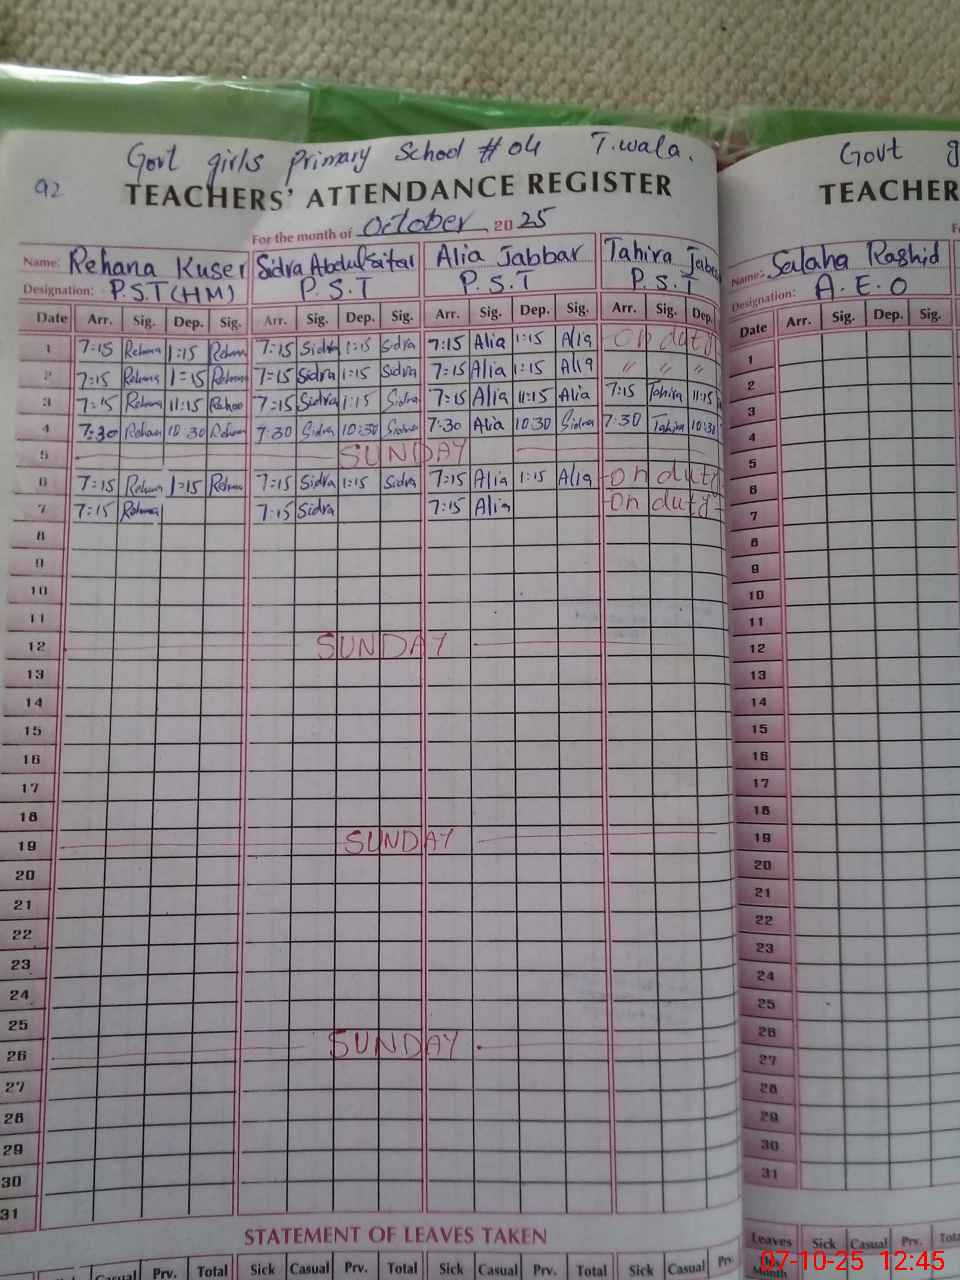 Govt girls Primary School #04 T.wala.
92
TEACHERS' ATTENDANCE REGISTER
For the month of October 2025
Name: Rehana Kuser Sidra Abdulsattar Alia Jabbar Tahira
Designation: P.S.T (HM) P.S.T P.S.T P.S.T
Date Arr. Sig. Dep. Sig. Arr. Sig. Dep. Sig. Arr. Sig. Dep. Sig. Arr. Sig. Dep.
1 7:15 Rehana 1:15 Rehana 7:15 Sidra 1:15 Sidra 7:15 Alia 1:15 Alia On duty
2 7:15 Rehana 1:15 Rehana 7:15 Sidra 1:15 Sidra 7:15 Alia 1:15 Alia " " "
3 7:15 Rehana 11:15 Rehana 7:15 Sidra 1:15 Sidra 7:15 Alia 11:15 Alia 7:15 Tahira 11:15
4 7:30 Rehana 10:30 Rehana 7:30 Sidra 10:30 Sidra 7:30 Alia 10:30 7:30 Tahira 10:30
5 SUNDAY
6 7:15 Rehana 1:15 Rehana 7:15 Sidra 1:15 Sidra 7:15 Alia 1:15 Alia On duty
7 7:15 Rehana 7:15 Sidra 7:15 Alia On duty
8
9
10
11
12 SUNDAY
13
14
15
16
17
18
19 SUNDAY
20
21
22
23
24
25
26 SUNDAY
27
28
29
30
31
STATEMENT OF LEAVES TAKEN
Casual Prv. Total Sick Casual Prv. Total Sick Casual Prv. Total Sick Casual Prv.
Govt
TEACHER
Name: Salaha Rashid
Designation: A.E.O
Date Arr. Sig. Dep. Sig.
1
2
3
4
5
6
7
8
9
10
11
12
13
14
15
16
17
18
19
20
21
22
23
24
25
26
27
28
29
30
31
Leaves Sick Casual Prv. Total
Month
07-10-25 12:45